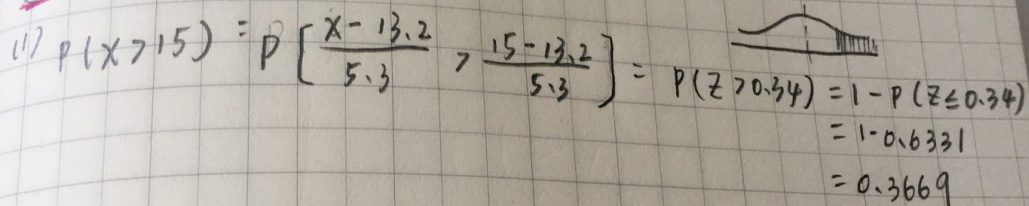 (1) P(X>15) = P[(X-13.2)/5.3 > (15-13.2)/5.3] = P(Z>0.34) = 1-P(Z≤0.34)
= 1-0.6331
= 0.3669